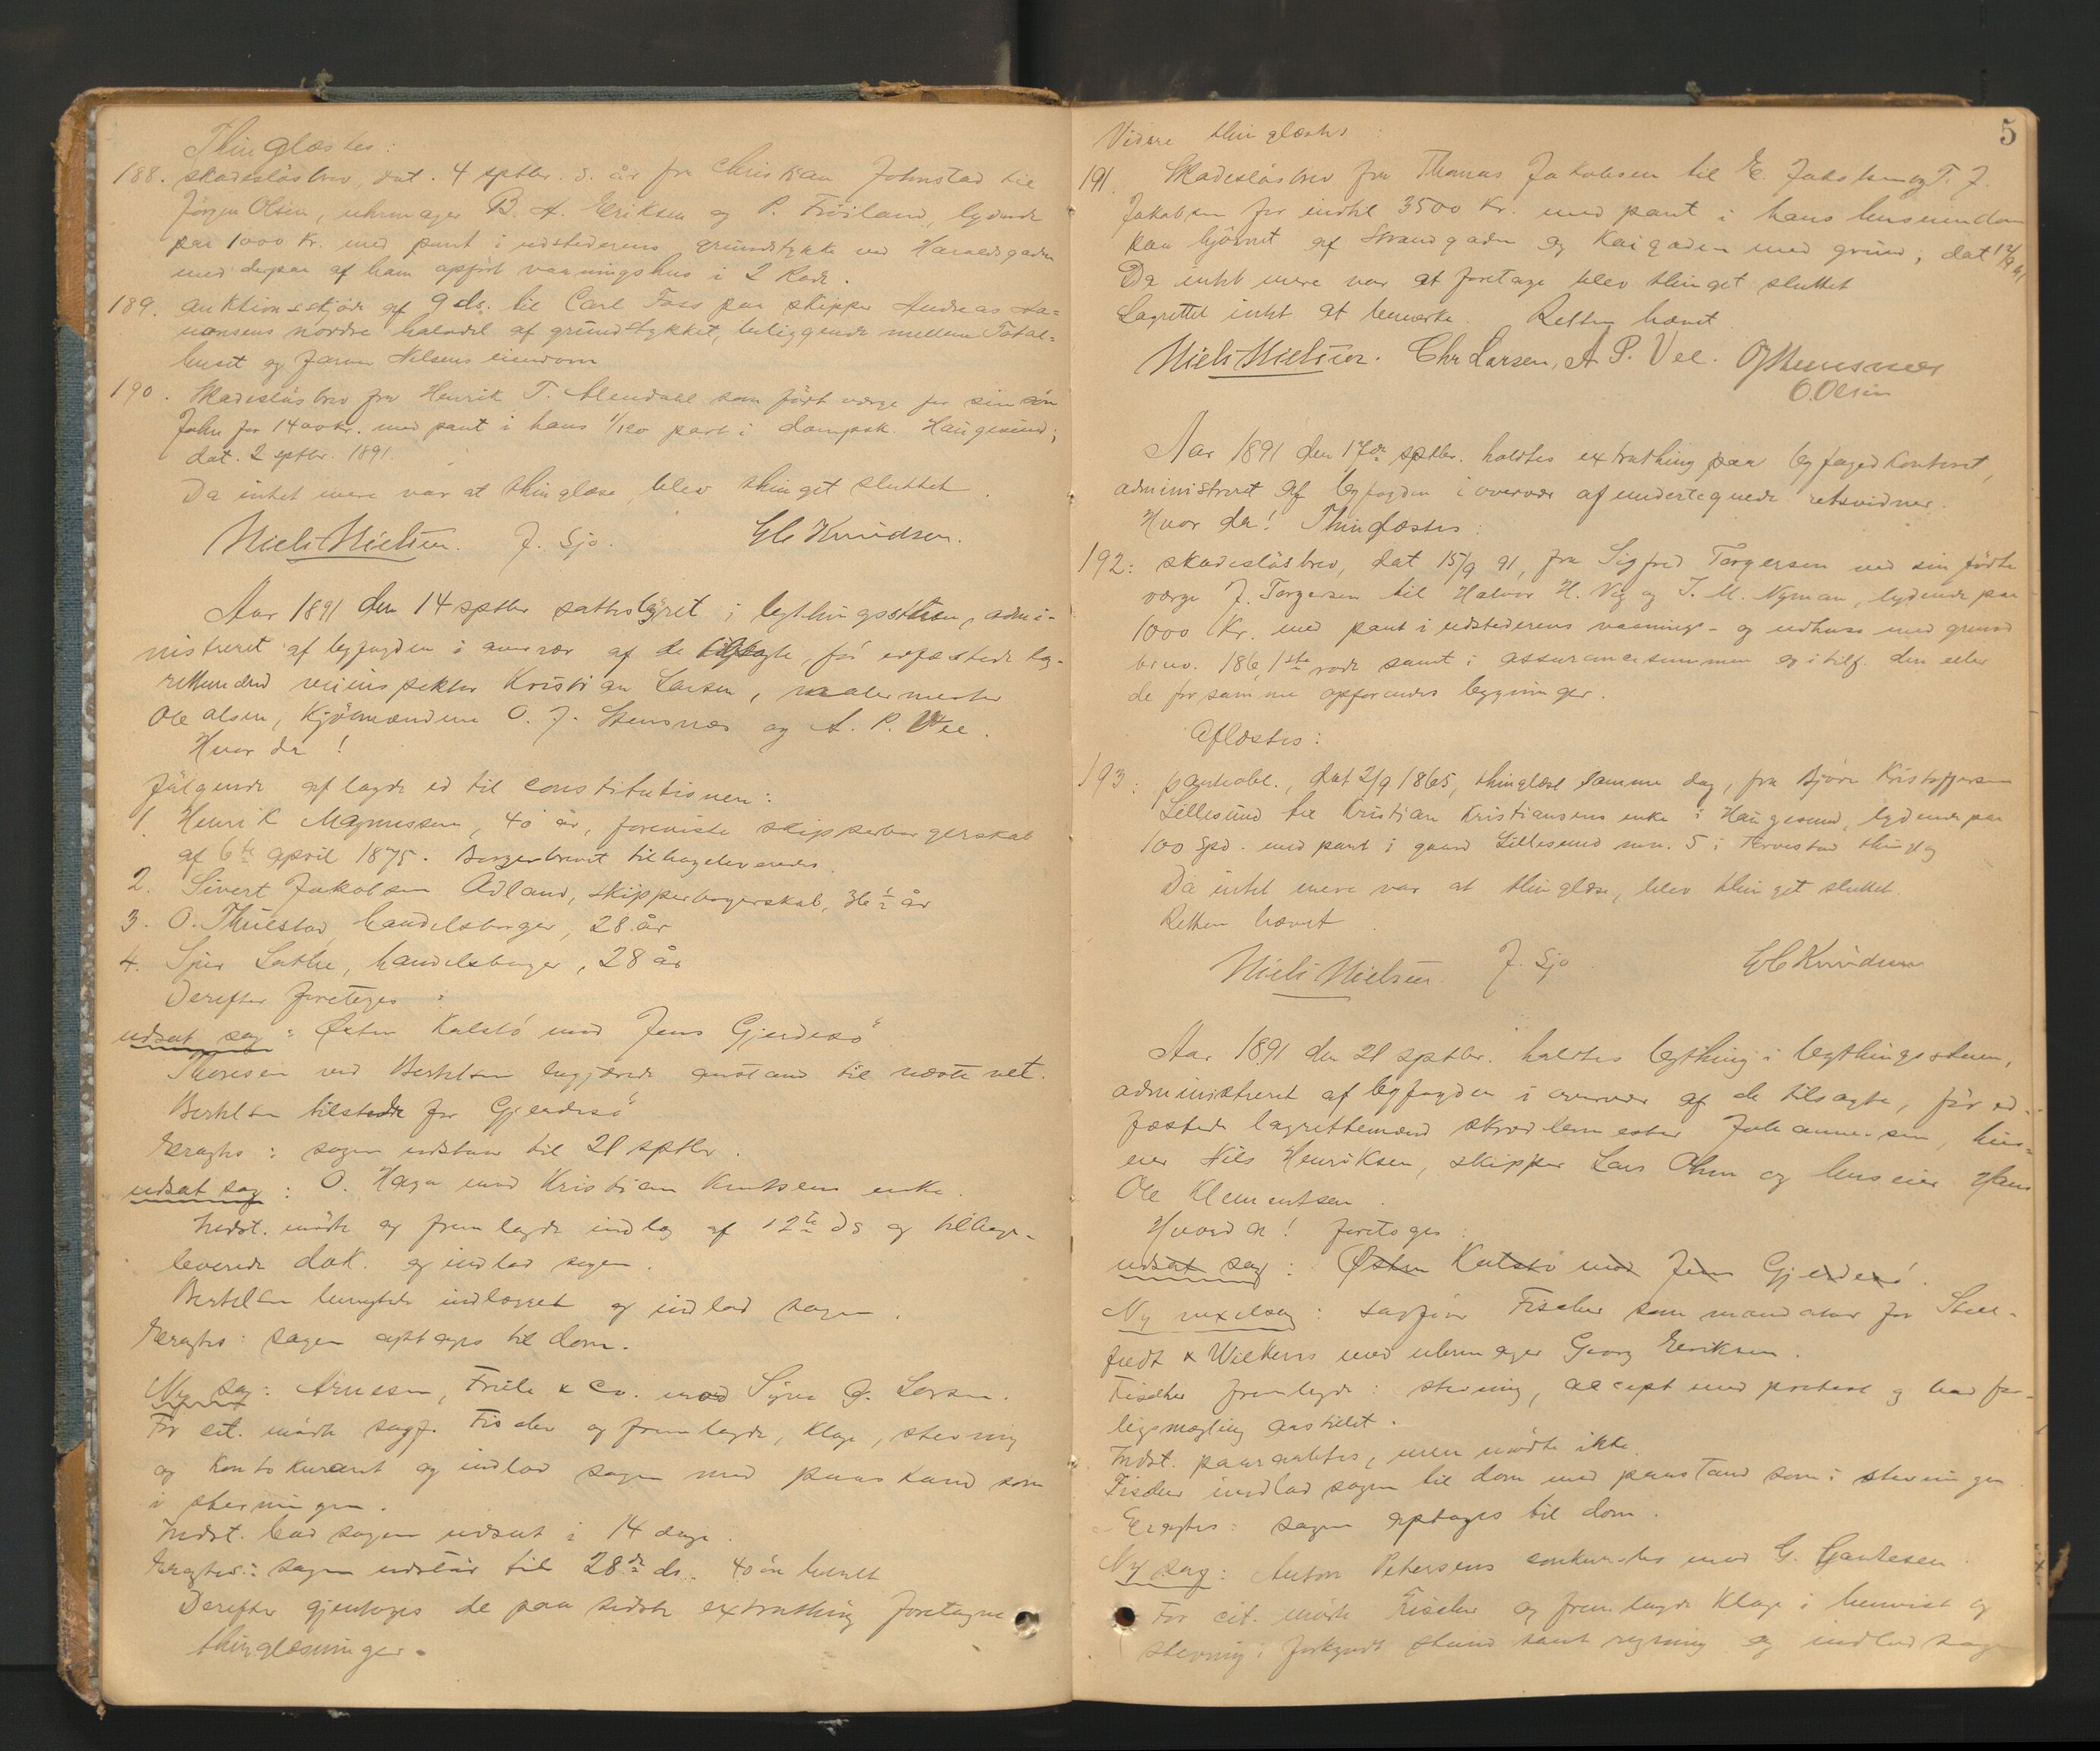 Thinglæstes:
188. skadesløsbrev, dat. 4 sptbr. d. år fra Christian Johnstad til
Jörgen Olsen, uhrmager B. A. Eriksen og P. Fröiland, lydende
paa 1000 Kr. med pant i udstederens grundstykke ved Haraldsgaden
med derpaa af ham opført vaaningshus i 2 Rode.
189. auktionsskjøde af 9 ds. til Carl Foss paa skipper Andreas
nordre halvdel af grundstykket, beliggende mellem
huset og Nilsens eiendom
190. Skadesløsbrev fra Henrik T. Alendahl som født værge for sin søn
John for 1400 kr. med pant i hans 1/120 part i dampsk. Haugesund,
dat. 2 sptbr. 1891.
Da intet mere var at thinglæse, blev thinget sluttet.
Niels Nielsen. J. Sjo. Knudsen.
Aar 1891 den 14 sptbr sattes byret i bythingsstuen, admi-
nistreret af byfogden i overvær af de tilsagte, før edfæstede lag-
rettemænd veiinspektør Kristian Larsen, malermester
Ole Olsen, Kjøbmændene O. J. Stensnæs og A. P. Vee.
Hvor da!
følgende aflagde ed til constitutionen:
1. Henrik Magnussen, 40 år, foreviste skipperborgerskab
af 6te april 1875. Borgerbrevet tilbageleveredes.
2. Sivert Jakobsen Ådland, skipperborgerskab, 36 1/2 år
3. O. Thuestad, handelsborger, 28 år
4. Lothe, handelsborger, 28 år
Derefter foretoges:
udsat sag: Østen Kalstö mod Jens Gjerdesö
ved Bertelsen begjærede anstand til næste ret.
Bertelsen tilstede for Gjerdesö
Eragtes: sagen udstaar til 21 sptbr.
udsat sag: O. Haga mod Kristian Knutsens enke.
Indst. mødte og fremlagde indlæg af 12te ds og tilbage-
leverede dok. og indlod sagen.
Bertelsen benegtede indlægget og indlod sagen.
Eragtes: sagen optages til dom.
Ny sag: Arnesen, Friele & Co. mod G. Larsen.
For cit. mødte sagf. Fischer og fremlagde, klage, stevning
og kontokurant og indlod sagen med paastand som
i stevningen.
Indst. bad sagen udsat i 14 dage.
Eragtes: sagen udstår til 28de ds. 40 øre betalt
Derefter gjentoges de paa sidste extrathing foretagne
thinglæsninger.
5
Videre thinglæstes:
191. Skadesløsbrev fra Thomas Jakobsen til E. Jakobsen og T. J.
Jakobsen for indtil 3500 Kr. med pant i hans huseiendom
paa hjørnet af Strandgaden og Kaigaden med grund, dat 12/9 91
Da intet mere var at foretage blev thinget sluttet
Lagrettet intet at bemærke. Retten hævet
Niels Nielsen. Chr Larsen, A. P. Vee. O J Stensnæs
O. Olsen
Aar 1891 den 17de sptbr. holdtes extrathing paa byfogedkontoret,
administreret af byfogden i overvær af undertegnede retsvidner.
Hvor da! Thinglæstes:
192: skadesløsbrev, dat 15/9 91, fra Sigfred Torgersen ved sin fødte
værge J. Torgersen til Halvor H. Vig og J. M. Nyman, lydende paa
1000 Kr. med pant i udstederens vaanings- og udhuse med grund
br. no. 186, 1ste rode samt i assurancesummen og i tilf. den eller
de for samme opførendes bygninger.
Aflæstes:
193: pantobl., dat 2/9 1865, thinglæst samme dag, fra Björn Kristoffersen
Lillesund til Kristian Kristiansens enke i Haugesund, lydende paa
100 Spd. med pant i gaard Lillesund mn. 5 i Torvestad thinglag
Da intet mere var at thinglæse, blev thinget sluttet.
Retten hævet.
Niels Nielsen J. Sjo Knudsen
Aar 1891 den 21 sptbr. holdtes bything i bythingsstuen,
administreret af byfogden i overvær af de tilsagte, før ed-
fæstede lagrettemænd skræddermester Johannesen, hus-
eier Nils Henriksen, skipper Lars Ohm og huseier Hans
Ole Klementsen.
Hvorda! foretoges:
udsat sag: Østen Kalstö mod Jens Gjerdesö.
Ny vexelsag: sagfør Fischer som mandatar for
& Wilkens mod uhrmager Georg Eriksen.
Fischer fremlagde: stevning, accept med protest og bad for-
ligsmægling anstillet.
Indst. paaraabtes, men mødte ikke.
Fischer indlod sagen til dom med paastand som i stevningen
Eragtes: sagen optages til dom.
Ny sag: Anton Petersens konkursbo mod G. Gautesen
For cit. mødte Fischer og fremlagde klage i henvist og
stevning i forkyndt stand samt regning og indlod sagen